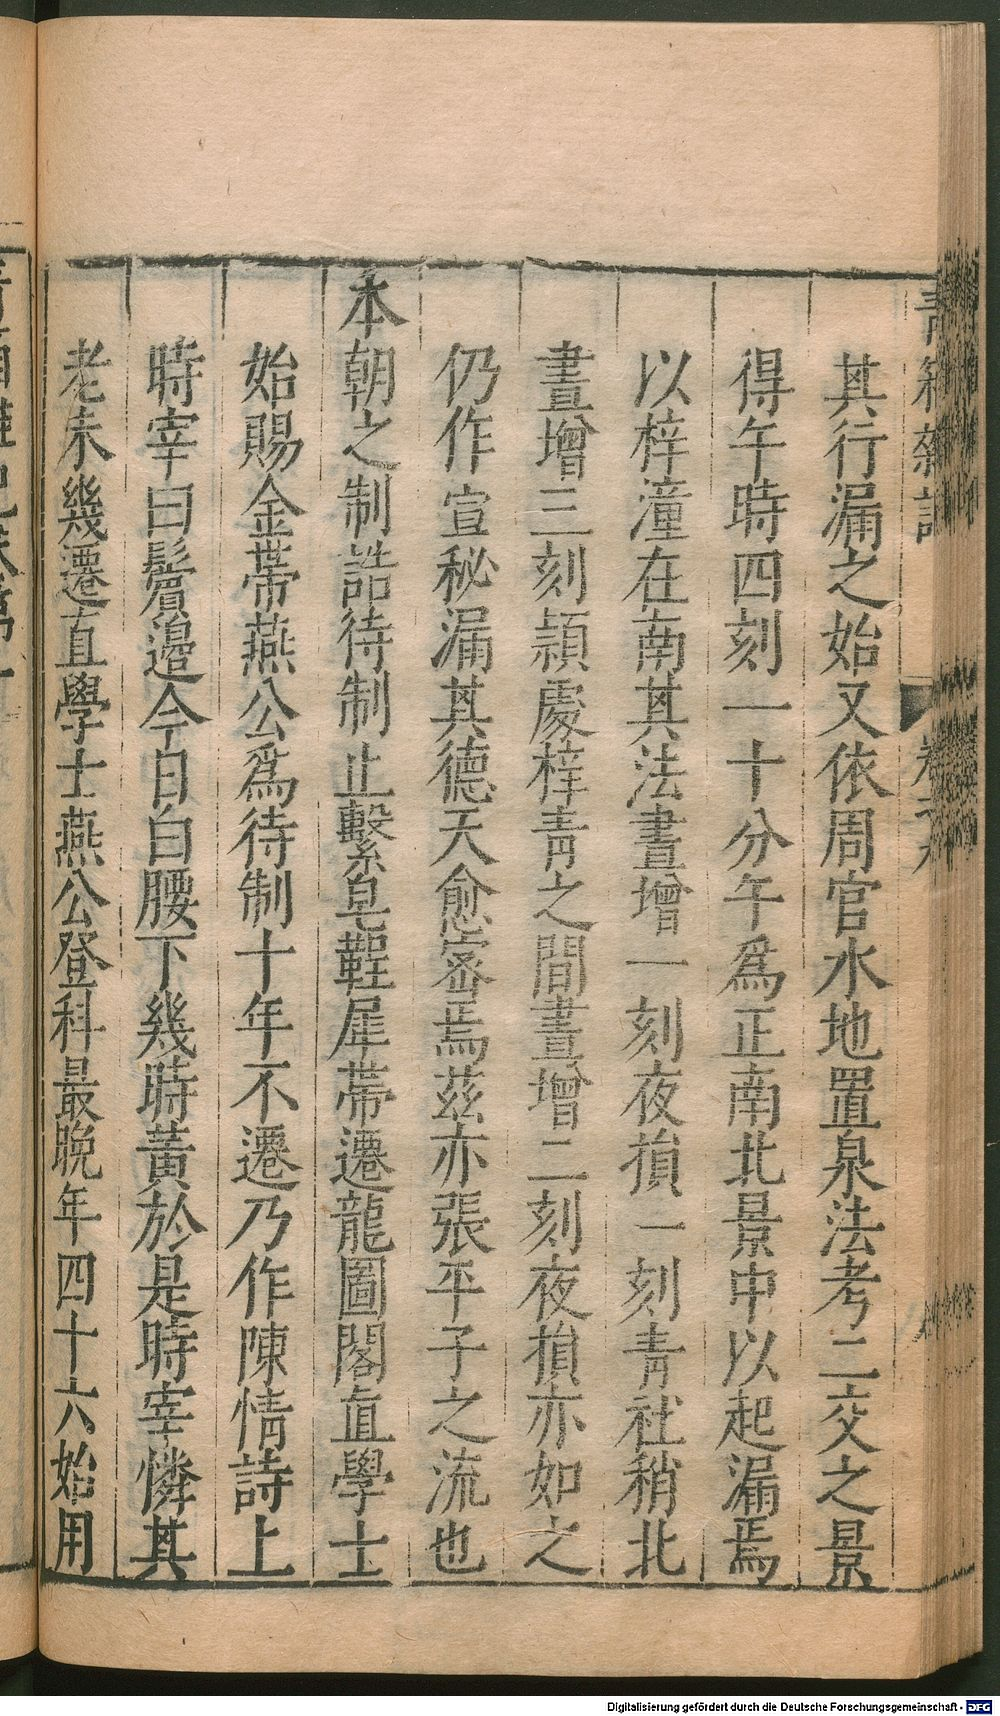 其行漏之始又依周官水地置泉法考二交之景
得午時四刻一十分午爲正南北景中以起漏焉
以梓潼在南其法晝增一刻夜損一刻靑社稍北
晝增三刻潁處梓靑之間晝增二刻夜損亦如之
仍作宣秘漏其德天愈密焉茲亦張平子之流也
本朝之制誥待制止繫皂鞓犀帶遷龍圖閣直學士
始賜金帶燕公爲待制十年不遷乃作陳情詩上
時宰曰鬢邊今日白腰下幾時黃於是時宰憐其
老未幾遷直學士燕公登科最晚年四十六始用
Digitalisierung gefördert durch die Deutsche Forschungsgemeinschaft - DFG